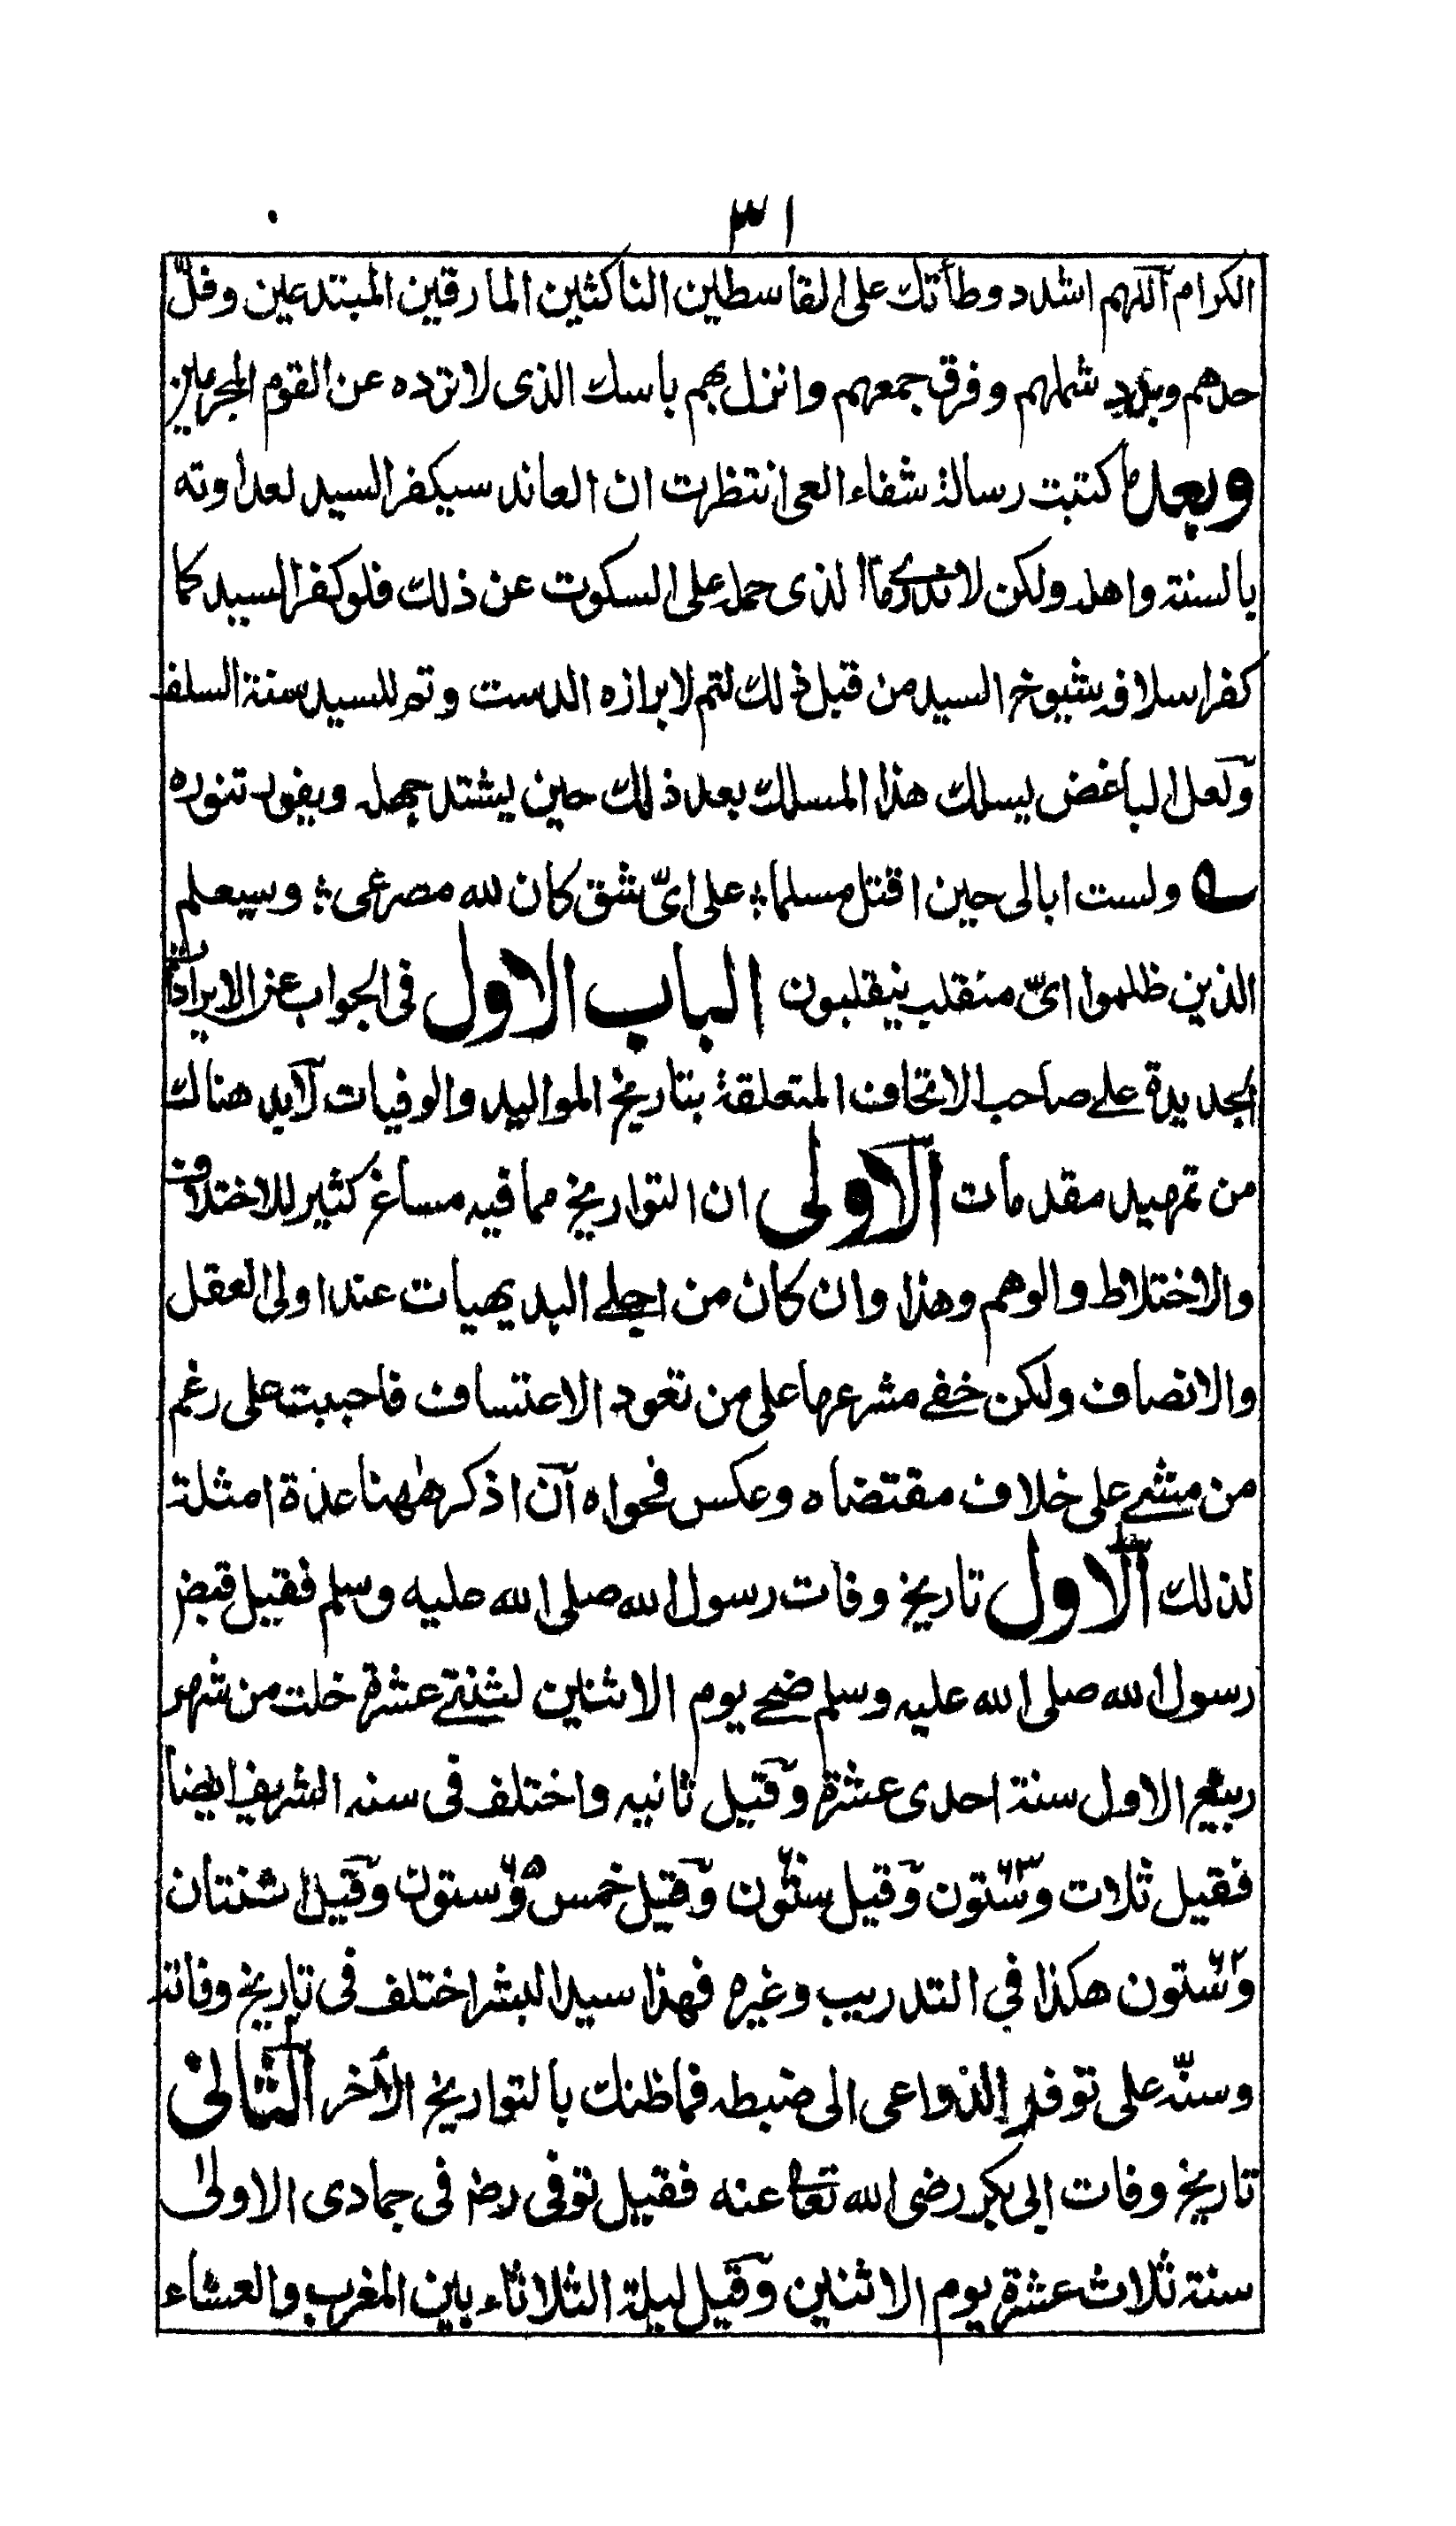 ٣١
الكرام اللهم اشدد وطأتك على القاسطين الناكثين المارقين المبتدعين وفلّ
حدهم وبدد شملهم وفرق جمعهم وانزل بهم باسك الذى لا ترده عن القوم المجرمين
وبعد كتبت رسالة شفاء العى انتظرت ان العاند سيكفر السيد لعداوته
بالسنة واهله ولكن لا ندرے ما الذى حمله على السكوت عن ذلك فلو كفر السيد كما
كفر اسلافه شيوخه السيد من قبل ذلك لتم لابرازه الدست وتم للسيد سنة السلف
ولعل الباغض يسلك هذا المسلك بعد ذلك حين يشتد جهله ويفور تنوره
ولست ابالى حين اقتل مسلما ؞ على اىّ شق كان لله مصرعى ؞ وسيعلم
الذين ظلموا اىّ منقلب ينقلبون الباب الاول فى الجواب عن الايرادات
الجديدة علے صاحب الاتحاف المتعلقة بتاريخ المواليد والوفيات لابد هناك
من تمهيد مقدمات الاولى ان التواريخ مما فيه مساغ كثير للاختلاف
والاختلاط والوهم وهذا وان كان من اجلے البديهيات عند اولى العقل
والانصاف ولكن خفے مشرعها على من تعود الاعتساف فاحببت على رغم
من مشے على خلاف مقتضاه وعكس فحواه ان اذكر ههنا عدة امثلة
لذلك الاول تاريخ وفات رسول الله صلى الله عليه وسلم فقيل قبض
رسول الله صلى الله عليه وسلم ضحے يوم الاثنين لثنتے عشرة خلت من شهر
ربيع الاول سنة احدى عشرة وقيل ثانيه واختلف فى سنه الشريف ايضا
فقيل ثلاث وستون ٦٣ وقيل ستون ٦٠ وقيل خمس وستون ٦٥ وقيل اثنتان
وستون ٦٢ هكذا فى التدريب وغيره فهذا سيد البشر اختلف فى تاريخ وفاته
وسنّه على توفر الدواعى الى ضبطه فما ظنك بالتواريخ الأخر الثانى
تاريخ وفات ابى بكر رضى الله تعا عنه فقيل توفى رضـ فى جمادى الاولىٰ
سنة ثلاث عشرة يوم الاثنين وقيل ليلة الثلاثاء بين المغرب والعشاء